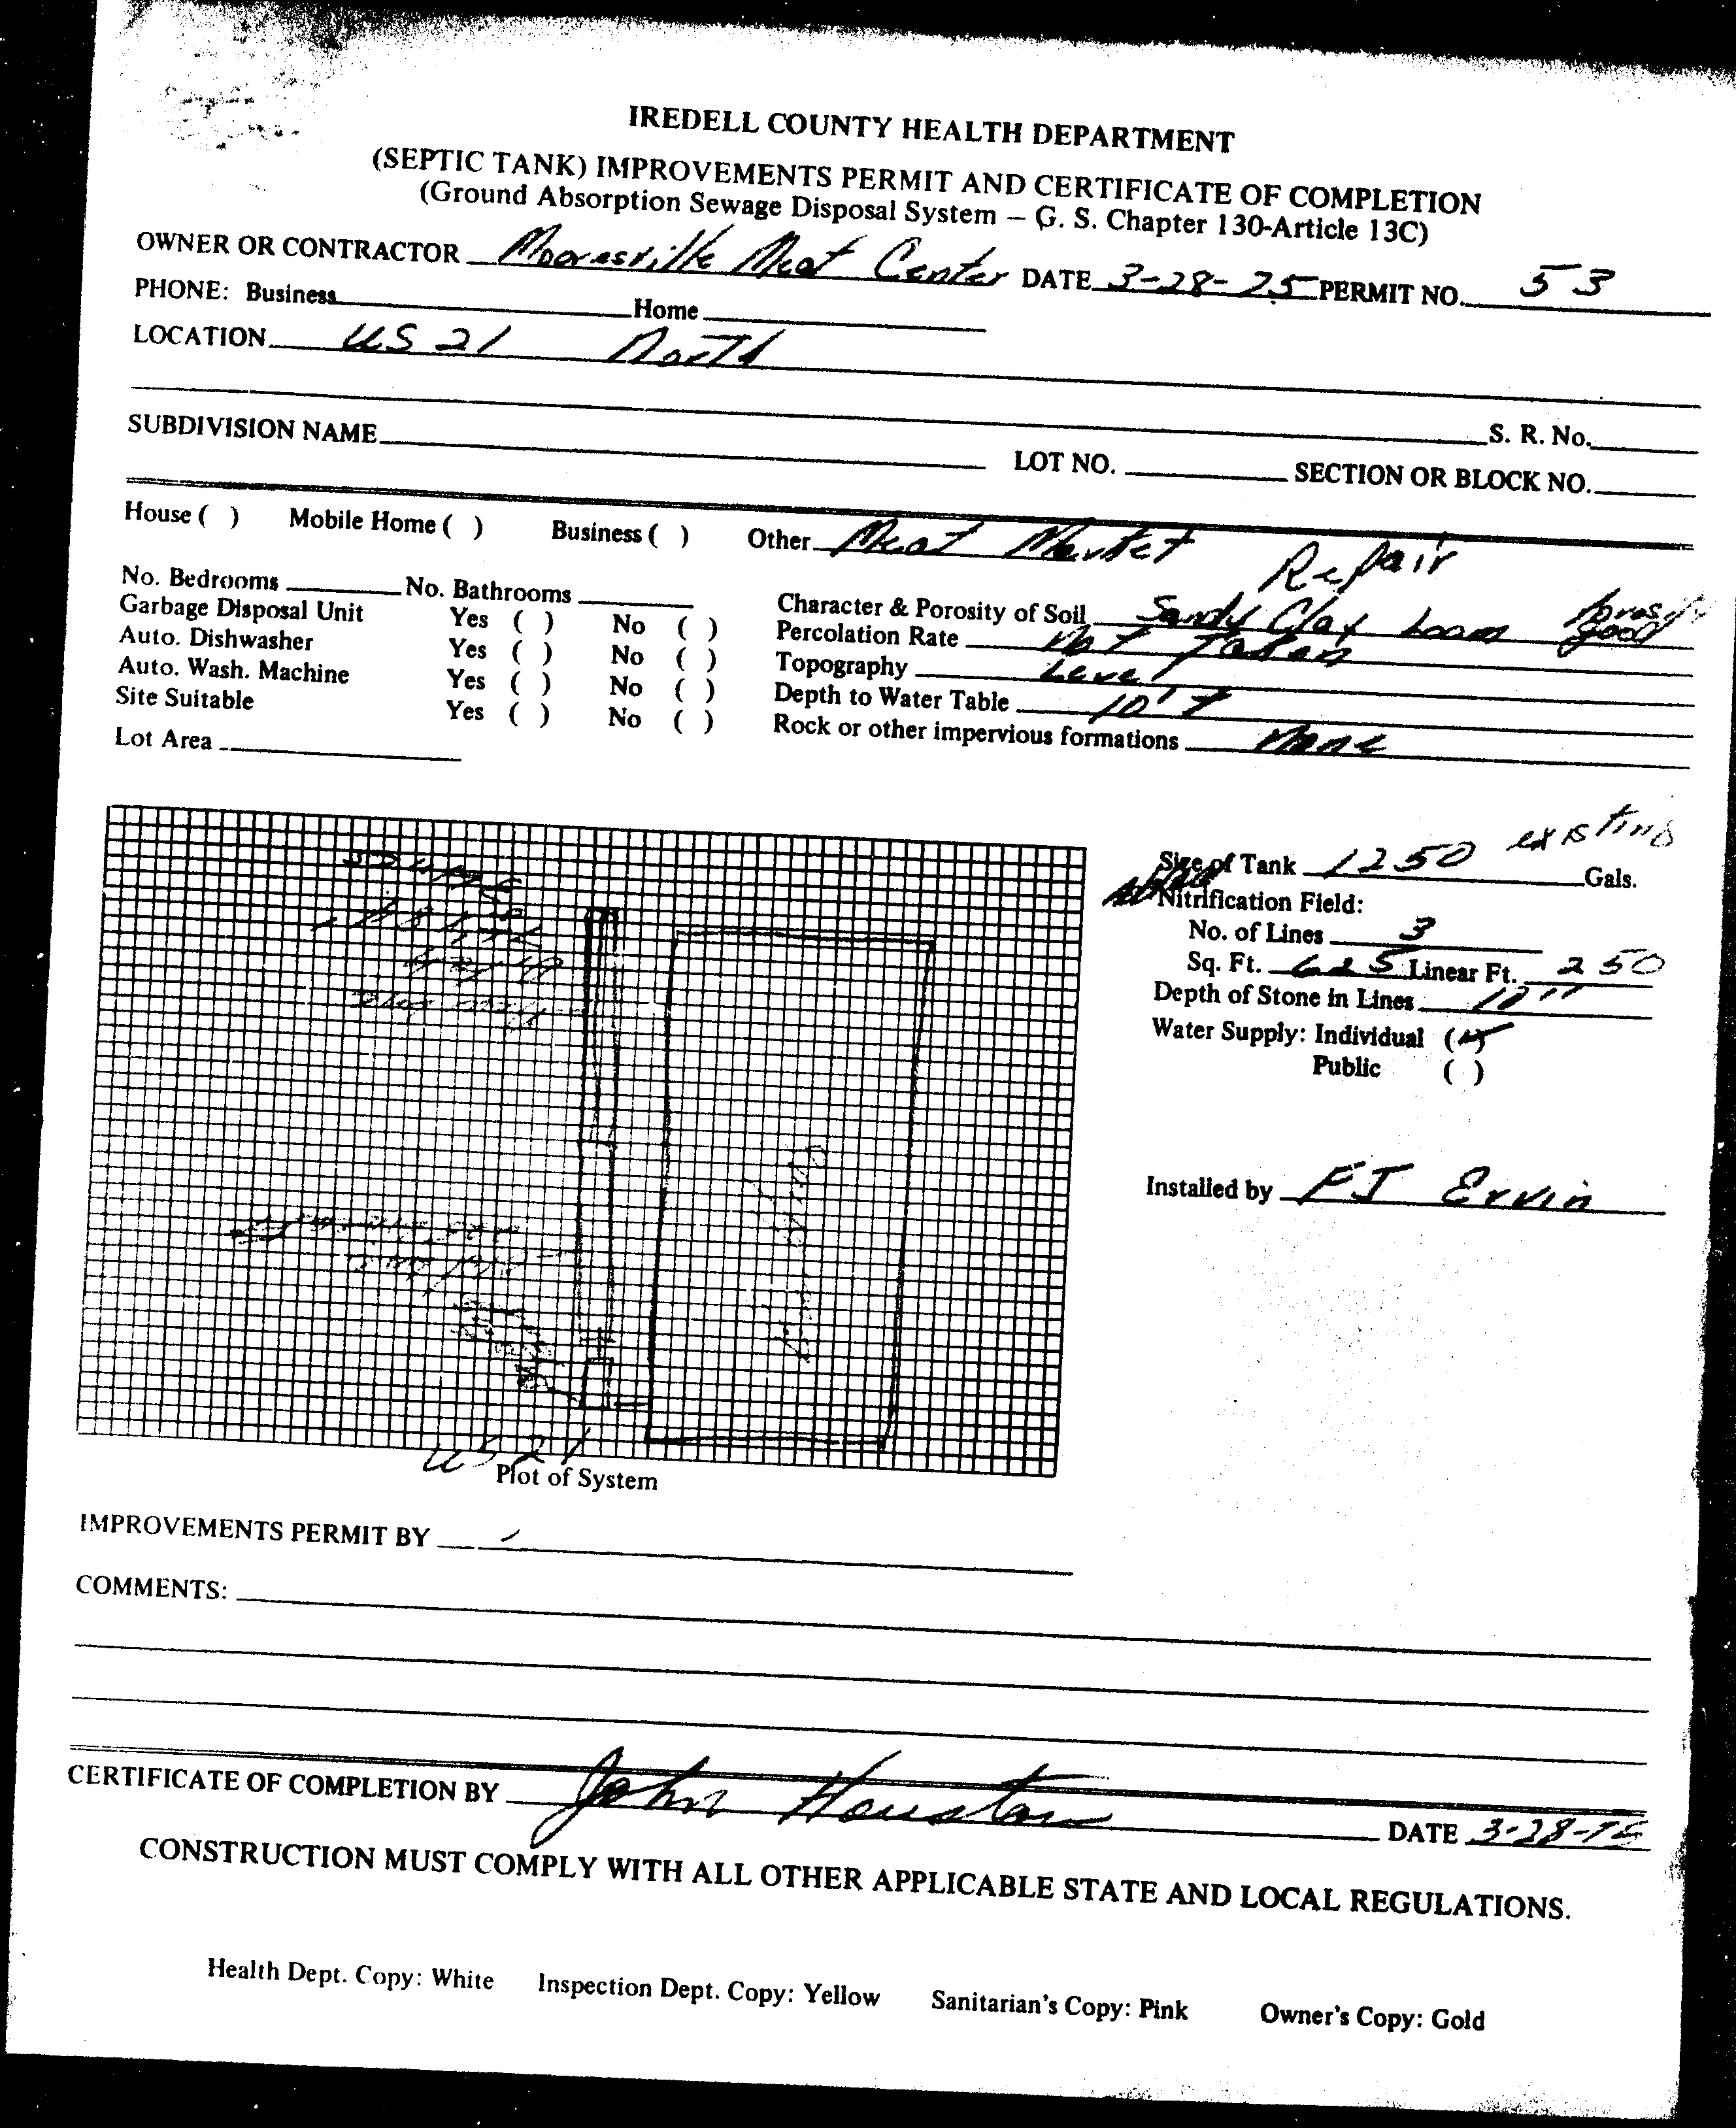 IREDELL COUNTY HEALTH DEPARTMENT
(SEPTIC TANK) IMPROVEMENTS PERMIT AND CERTIFICATE OF COMPLETION
(Ground Absorption Sewage Disposal System – G. S. Chapter 130-Article 13C)
OWNER OR CONTRACTOR Mooresville Meat Center DATE 3-28-75 PERMIT NO. 53
PHONE: Business Home
LOCATION US 21 North
S. R. No.
SUBDIVISION NAME LOT NO. SECTION OR BLOCK NO.
House ( ) Mobile Home ( ) Business ( ) Other Meat Market Repair
No. Bedrooms No. Bathrooms
Garbage Disposal Unit Yes ( ) No ( )
Auto. Dishwasher Yes ( ) No ( )
Auto. Wash. Machine Yes ( ) No ( )
Site Suitable Yes ( ) No ( )
Lot Area
Character & Porosity of Soil Sandy Clay Loam Porosity good
Percolation Rate Not Taken
Topography Level
Depth to Water Table 10' +
Rock or other impervious formations None
Size of Tank 1250 existing Gals.
Nitrification Field:
No. of Lines 3
Sq. Ft. 625 Linear Ft. 250
Depth of Stone in Lines 10"
Water Supply: Individual (✓)
Public ( )
Installed by FJ Ervin
US 21
Plot of System
IMPROVEMENTS PERMIT BY
COMMENTS:
CERTIFICATE OF COMPLETION BY John Houston DATE 3-28-75
CONSTRUCTION MUST COMPLY WITH ALL OTHER APPLICABLE STATE AND LOCAL REGULATIONS.
Health Dept. Copy: White Inspection Dept. Copy: Yellow Sanitarian's Copy: Pink Owner's Copy: Gold